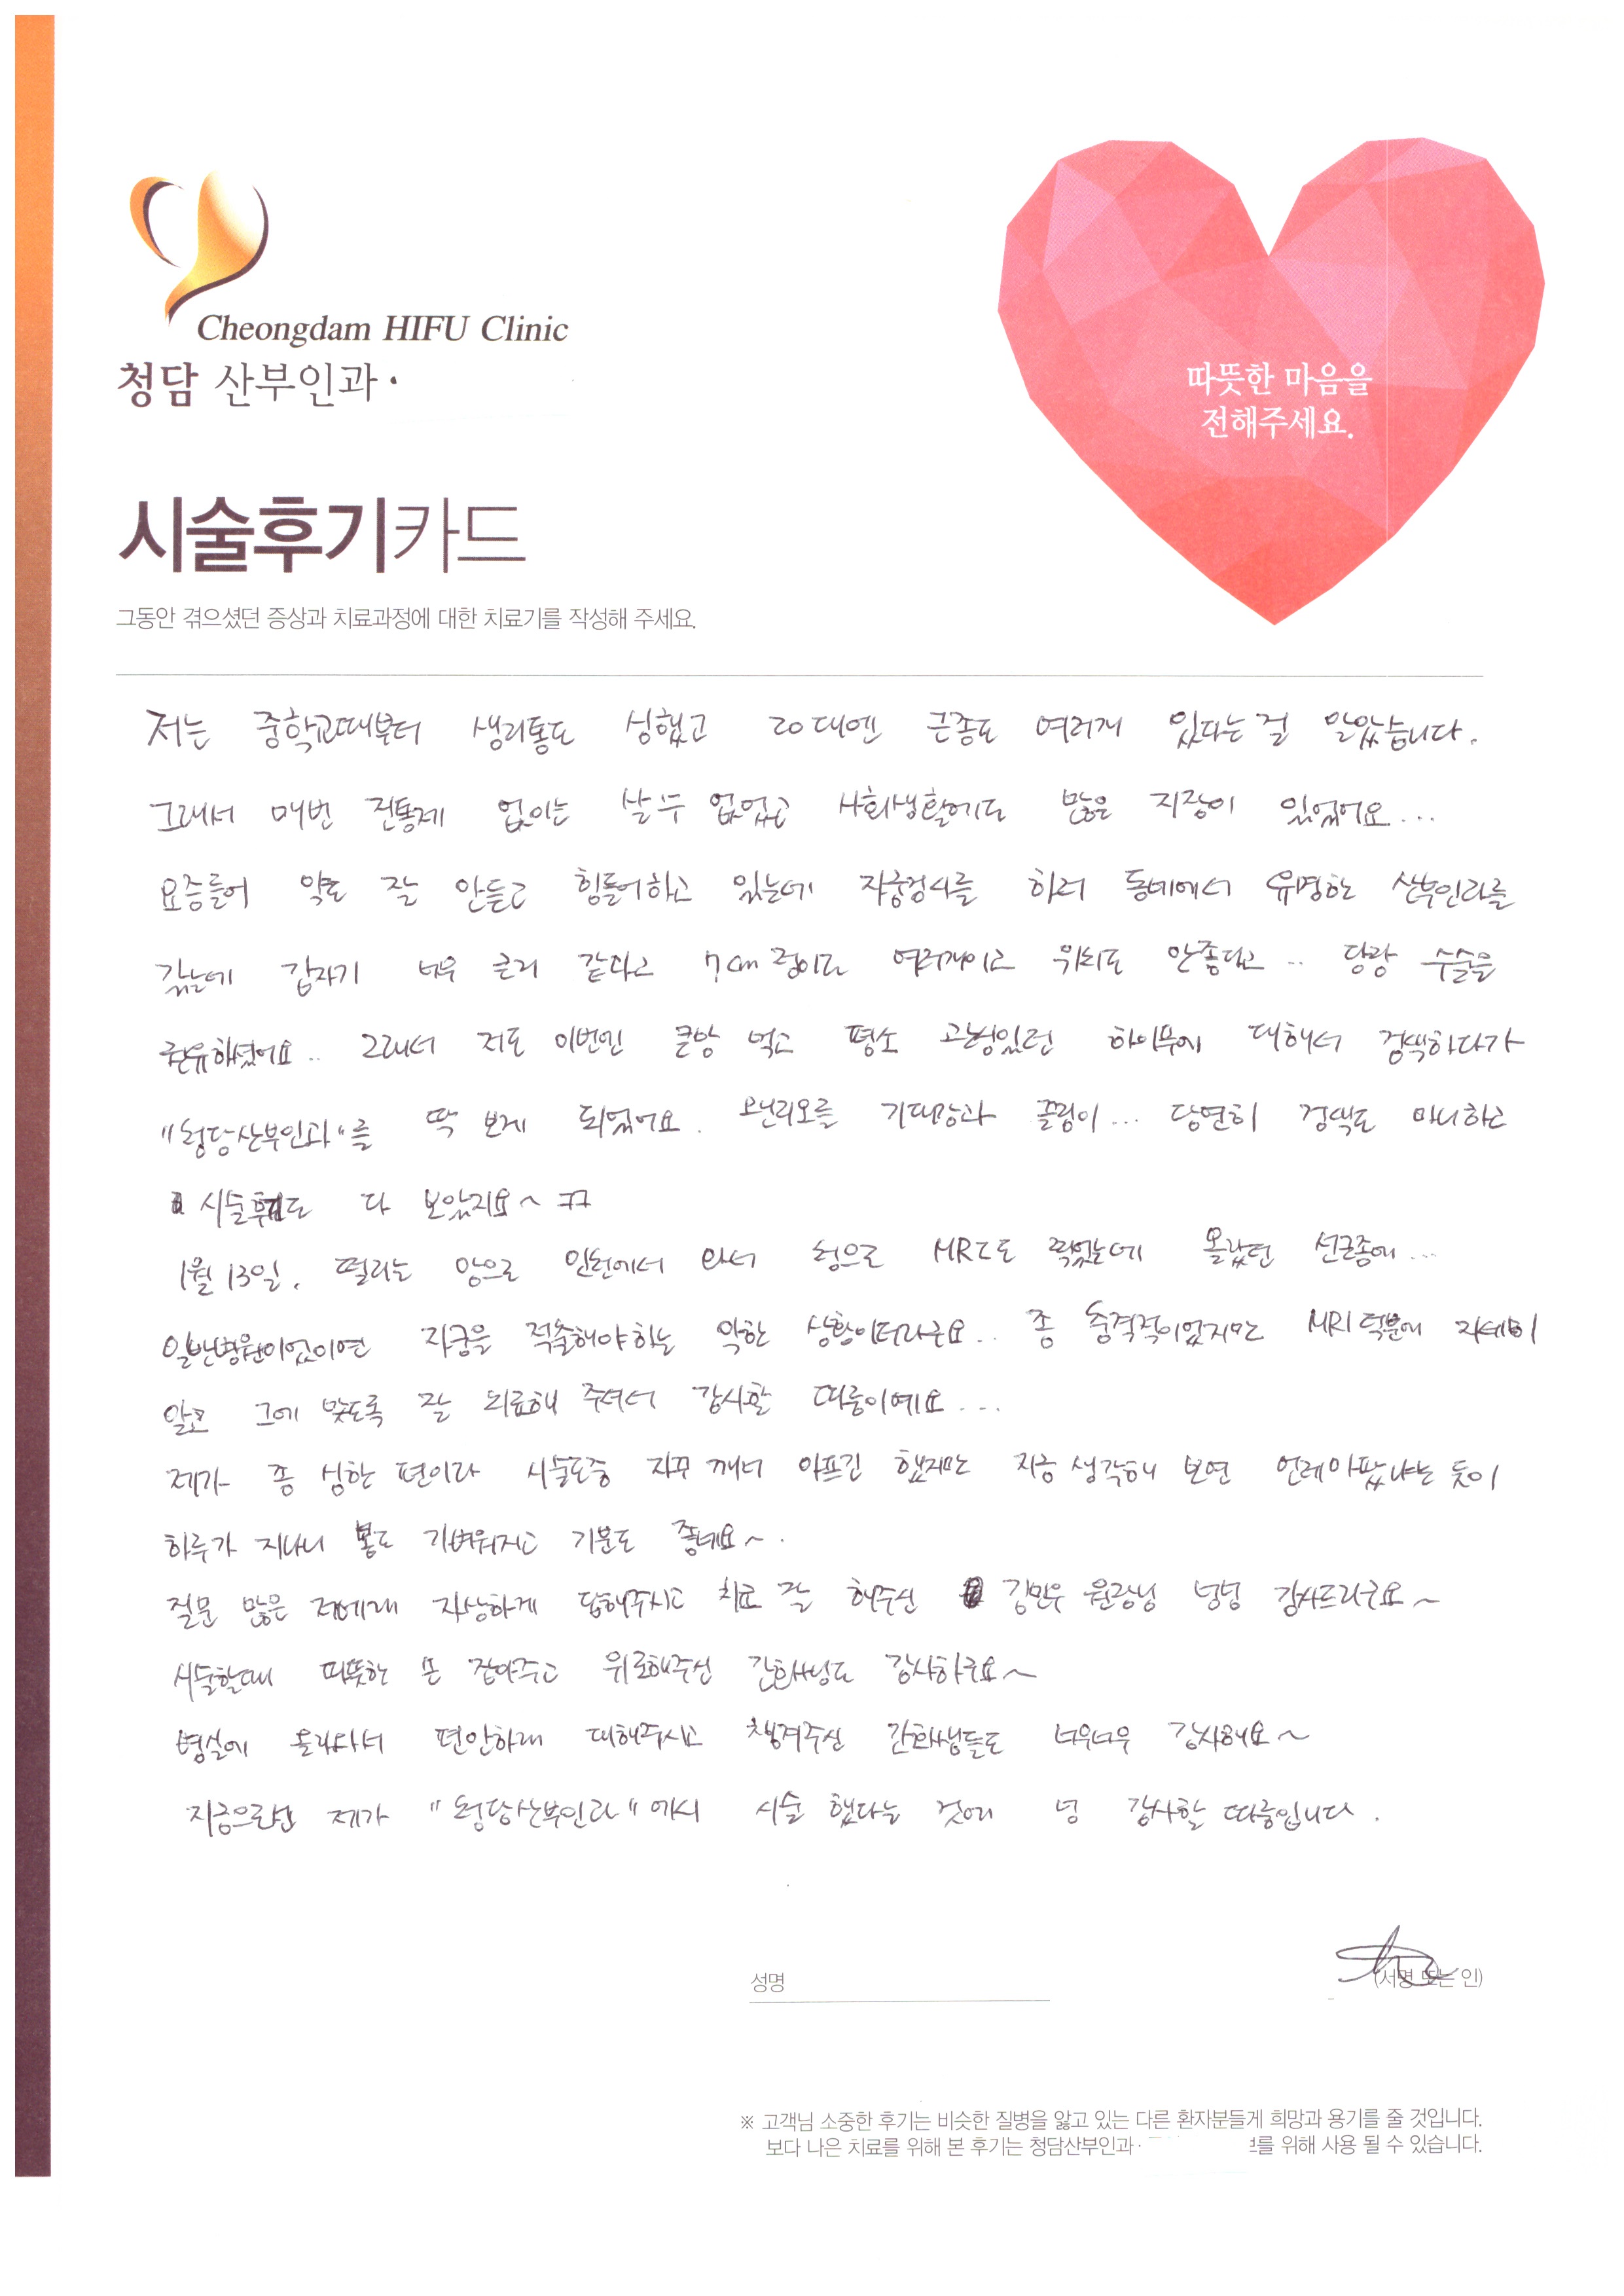 Cheongdam HIFU Clinic
청담 산부인과·
따뜻한 마음을
전해주세요.
시술후기카드
그동안 겪으셨던 증상과 치료과정에 대한 치료기를 작성해 주세요.
저는 중학교때부터 생리통도 심했고 20대엔 근종도 여러개 있다는 걸 알았습니다.
그래서 매번 진통제 없이는 살 수 없었고 사회생활에도 많은 지장이 있었어요...
요즘들어 약도 잘 안듣고 힘들어하고 있는데 자궁검사를 하러 동네에서 유명한 산부인과를
갔는데 갑자기 너무 큰거 같다고 7cm 정이고 여러개이고 위치도 안좋다고.. 당장 수술을
권유하셨어요.. 그래서 저도 이번엔 큰맘 먹고 평소 관심있던 하이푸에 대해서 검색하다가
"청담산부인과"를 딱 보게 되었어요. 기대감과 끌림이... 당연히 검색도 마니하고
시술후기도 다 보았지요~ ㅋㅋ
1월 13일. 떨리는 맘으로 인천에서 와서 첨으로 MRI도 찍었는데 몰랐던 선근종에...
일반병원이었이면 자궁을 적출해야하는 악한 상황이더라구요.. 좀 충격적이었지만 MRI 덕분에 자세히
알고 그에 맞도록 잘 치료해 주셔서 감사할 따름이에요...
제가 좀 심한 편이라 시술도중 자꾸 깨서 아프긴 했지만 지금 생각해 보면 언제아팠냐는 듯이
하루가 지나니 몸도 가벼워지고 기분도 좋네요~.
질문 많은 저에게 자상하게 답해주시고 치료 잘 해주신 김민우 원장님 넘넘 감사드리구요~
시술할때 따뜻한 손 잡아주고 위로해주신 간호사님도 감사하구요~
병실에 올라와서 편안하게 대해주시고 챙겨주신 간호사님들도 너무너무 감사해요~
지금으로선 제가 "청담산부인과"에서 시술 했다는 것에 넘 감사할 따름입니다.
성명
(서명 또는 인)
※ 고객님 소중한 후기는 비슷한 질병을 앓고 있는 다른 환자분들게 희망과 용기를 줄 것입니다.
보다 나은 치료를 위해 본 후기는 청담산부인과· 를 위해 사용 될 수 있습니다.